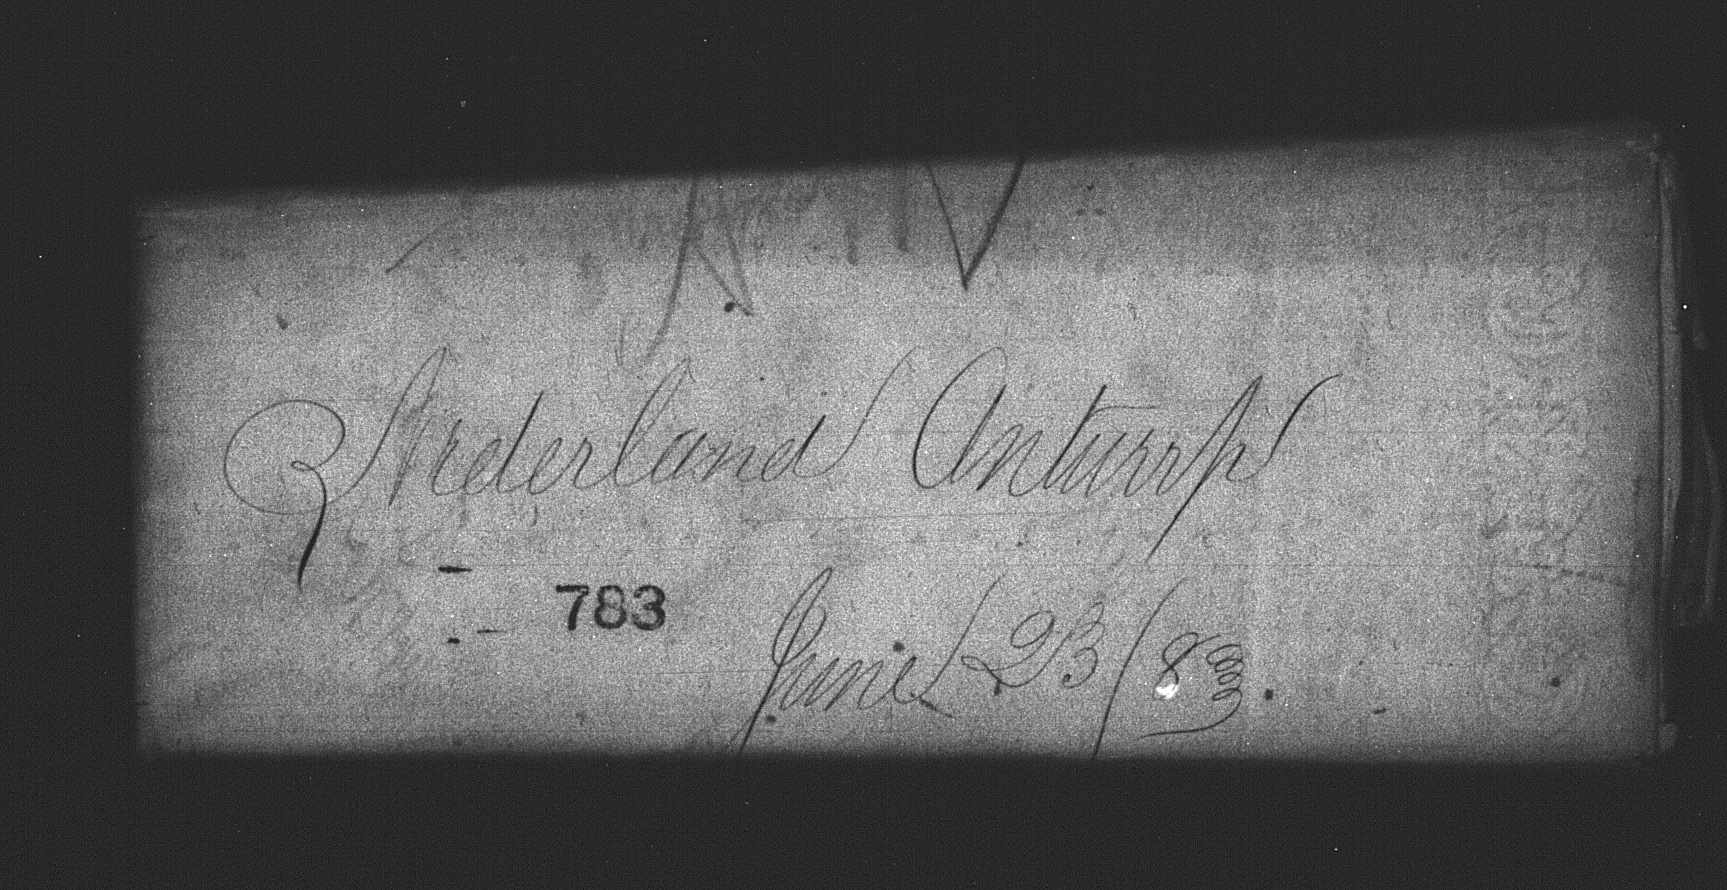 Nederland Antwerp
783
June 23/83